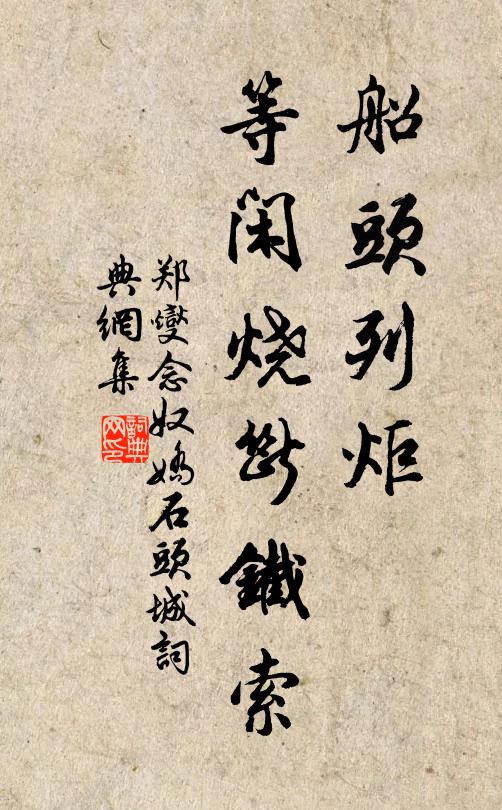 船頭列炬
等閑燒斷鐵索
郑燮念奴嬌石頭城詞
典網集
詞典網印